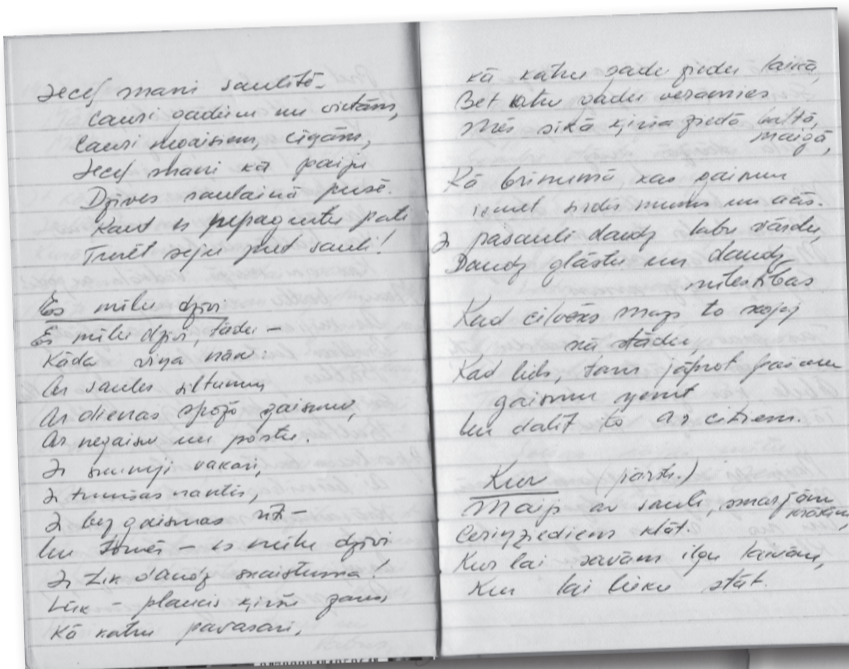 Jeceļ mani saulītē
Cauri gadiem un vietām,
Cauri negaisiem, cīņām,
Jeceļ mani kā paiju
Dzīves saulainā pusē.
Kaut es nepagurtu pati
Turēt seju pret sauli!
Es mīlu dzīvi
Es mīlu dzīvi, tādu –
Kāda viņa nāk:
Ar saules siltumu,
Ar dienas spožo gaismu,
Ar negaisu un postu.
Ir skumji vakari,
Ir tumšas naktis,
Ir bez gaismas rīt –
Un tomēr – es mīlu dzīvi
Ir tik daudz skaistuma!
Lūk – plaucis ķiršu zars
Kā katru pavasari,
kā katru gadu ziedu laikā,
Bet katru gadu veramies
Mēs sīkā ķirša ziedā baltā,
maigā,
Kā brīnumā, kas gaismu
izmet sirdīs mums un acīs.
Ir pasaulē daudz labu vārdu,
Daudz glāstu un daudz
mīlestības
Kad cilvēks mazs to sajoj
kā stādu,
Kad liels, tam jāprot pašam
gaismu ņemt
Un dalīt to ar citiem.
Kur
Maijs ar sauli, smaržām
krāsām,
Ceriņziediem klāt.
Kur lai savāms ilgu kavām,
Kur lai lieku stāt.